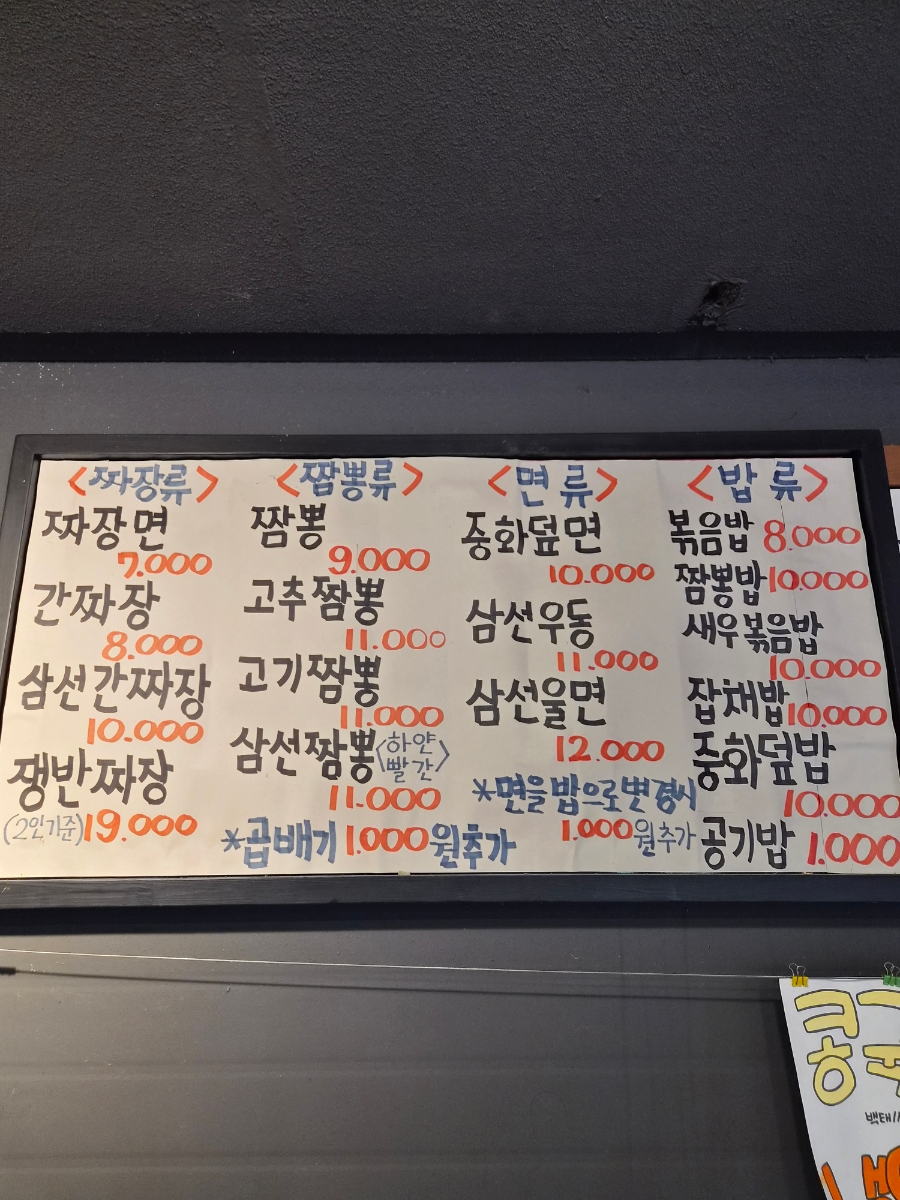 <짜장류>
짜장면
7.000
간짜장
8.000
삼선간짜장
10.000
쟁반짜장
(2인기준) 19.000
<짬뽕류>
짬뽕
9.000
고추짬뽕
11.000
고기짬뽕
11.000
삼선짬뽕 <하얀
빨간>
11.000
*곱배기 1.000원추가
<면류>
중화덮면
10.000
삼선우동
11.000
삼선울면
12.000
*면을밥으로변경시
1.000원추가
<밥류>
볶음밥 8.000
짬뽕밥 10.000
새우볶음밥
10.000
잡채밥 10.000
중화덮밥
10.000
공기밥 1.000
콩
백태//